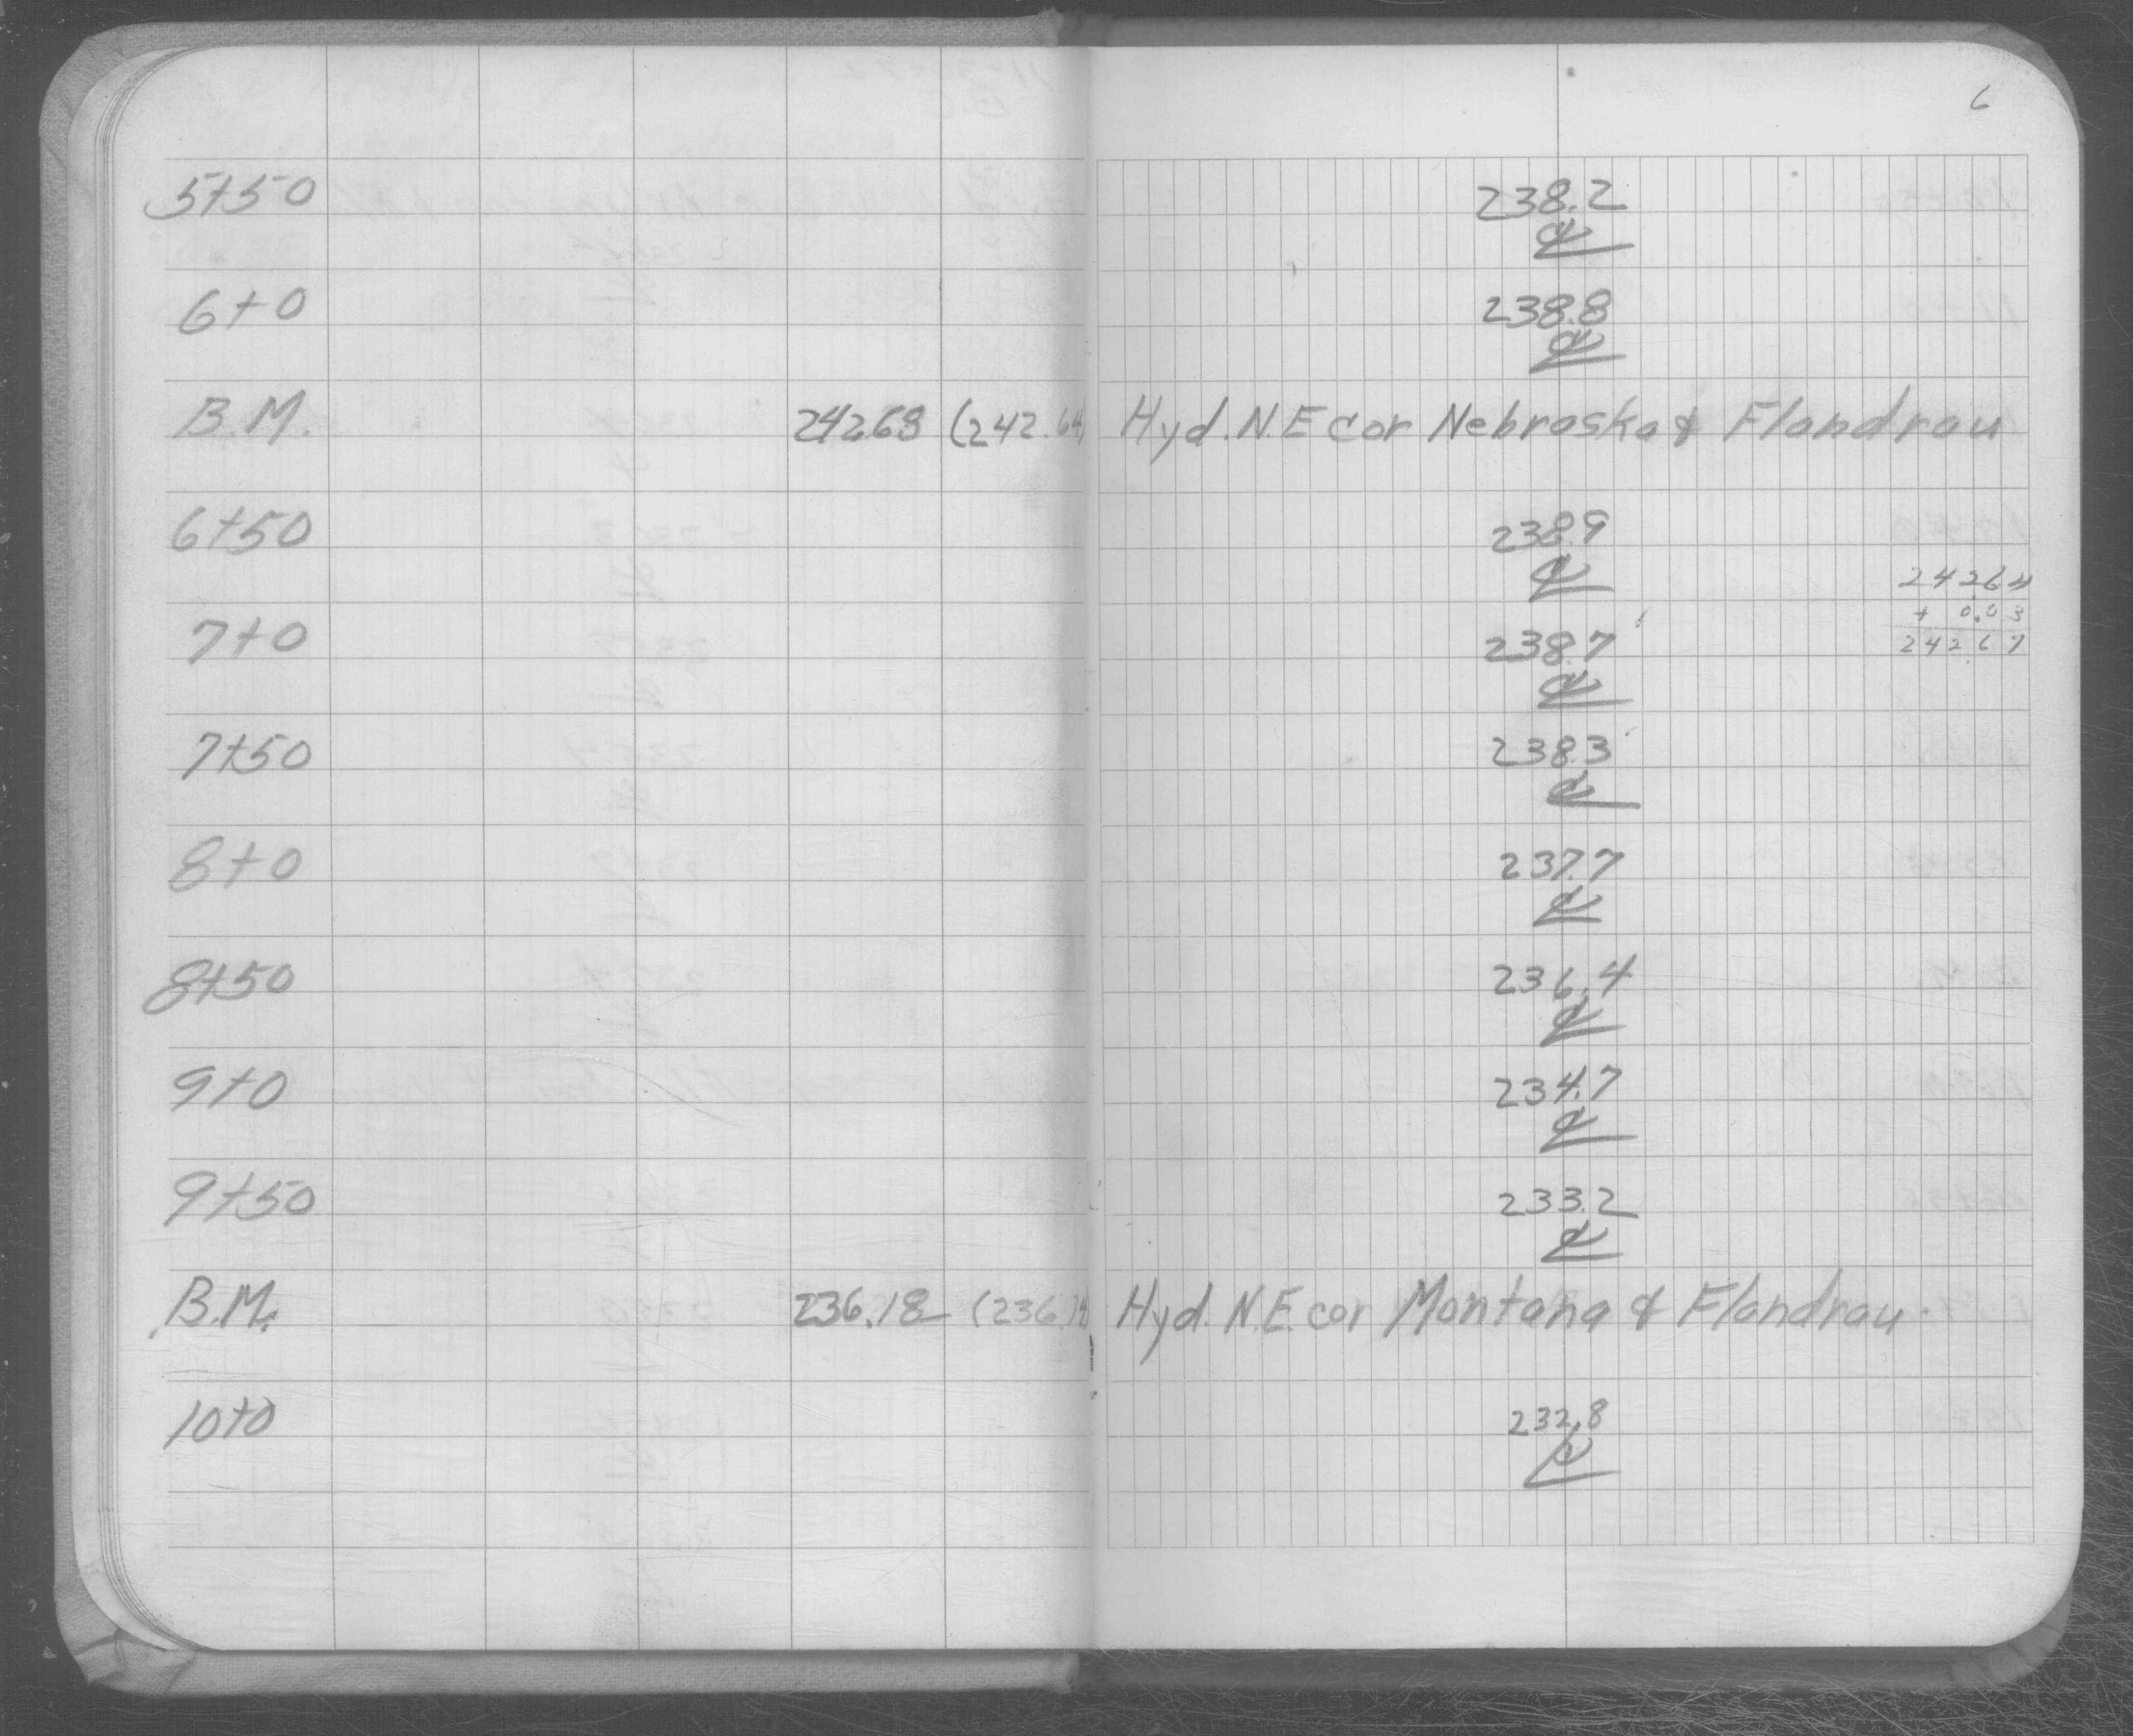 6
5+50 238.2
℄
6+0 238.8
℄
B.M. 242.68 (242.64) Hyd. N.E cor Nebraska & Flandrau
6+50 238.9
℄
24264
+ 0.03
242.67
7+0 238.7
℄
7+50 238.3
℄
8+0 237.7
℄
8+50 236.4
℄
9+0 234.7
℄
9+50 233.2
℄
B.M. 236.18 Hyd. N.E. cor Montana & Flandrau.
10+0 232.8
℄